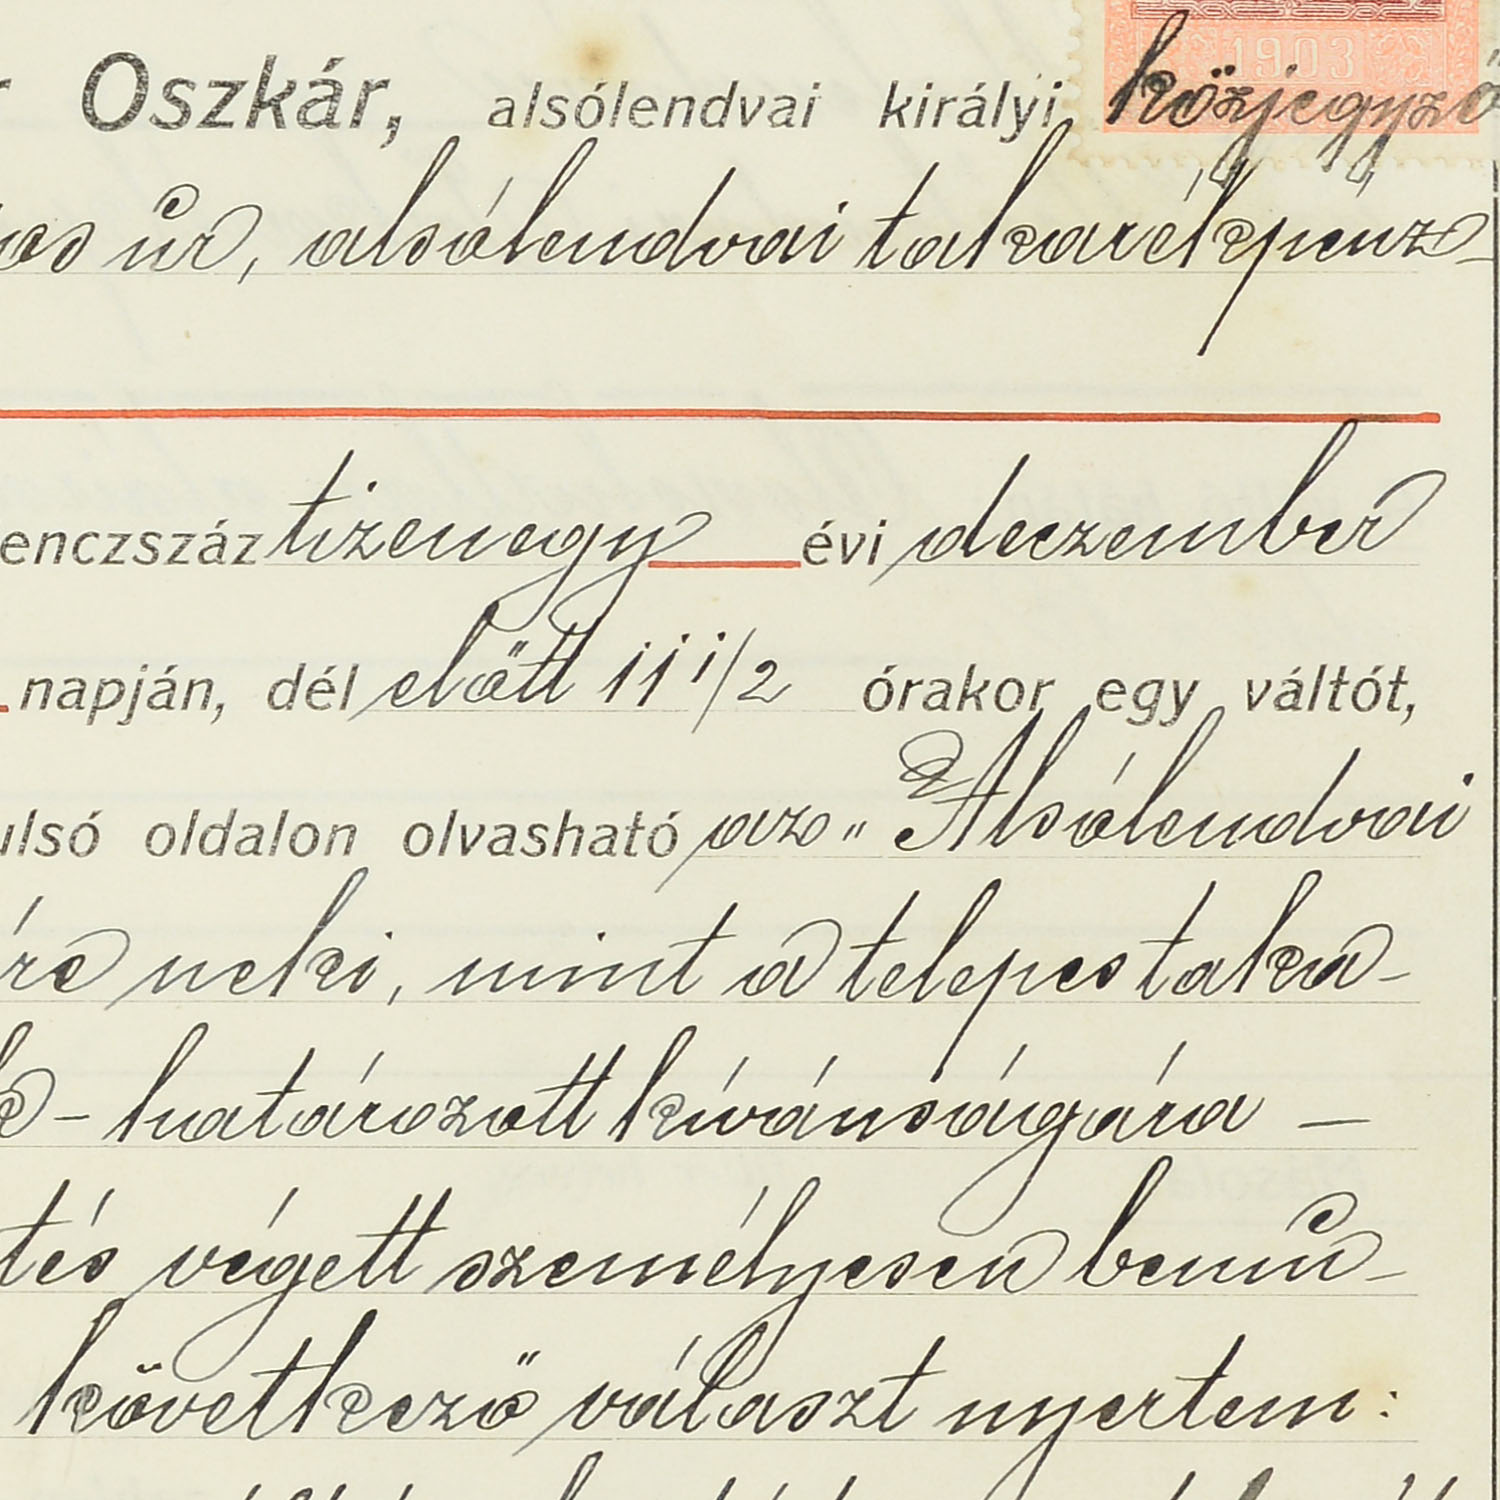 Oszkár, alsólendvai királyi közjegyző
1903
úr, alsólendvai takarékpénz-
enczszáz tizenegy évi deczember
napján, dél előtt 11 1/2 órakor egy váltót,
ulsó oldalon olvasható az „Alsólendvai
re neki, mint a telepes taka-
- határozott kívánságára —
tés végett személyesen bemu-
következő választ nyertem: